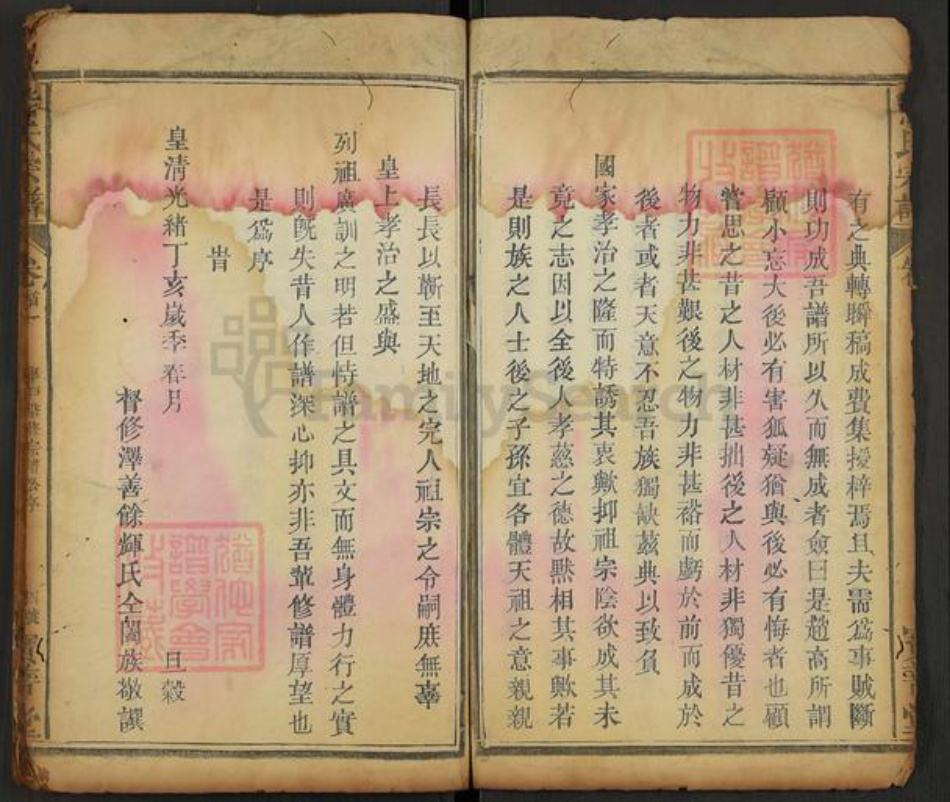 有之典轉瞬稿成費集授梓焉且夫需為事賊斷
則功成吾譜所以久而無成者僉曰是趙高所謂
顧小忘大後必有害狐疑猶與後必有悔者也顧
嘗思之昔之人材非甚拙後之人材非獨優昔之
物力非甚艱後之物力非甚裕而虧於前而成於
後者或者天意不忍吾族獨缺茲典以致負
國家孝治之隆而特誘其衷歟抑祖宗陰欲成其未
竟之志因以全後人孝慈之德故默相其事歟若
是則族之人士後之子孫宜各體天祖之意親親
長長以蘄至天地之完人祖宗之令嗣庶無辜
皇上孝治之盛與
列祖廣訓之明若但恃譜之具文而無身體力行之實
則旣失昔人作譜深心抑亦非吾輩修譜厚望也
是為序
旹
皇清光緒丁亥歲季春月 旦 穀
督修澤善餘輝氏仝闔族敬譔
氏宗譜
卷首
FamilySearch
譜學會
收藏